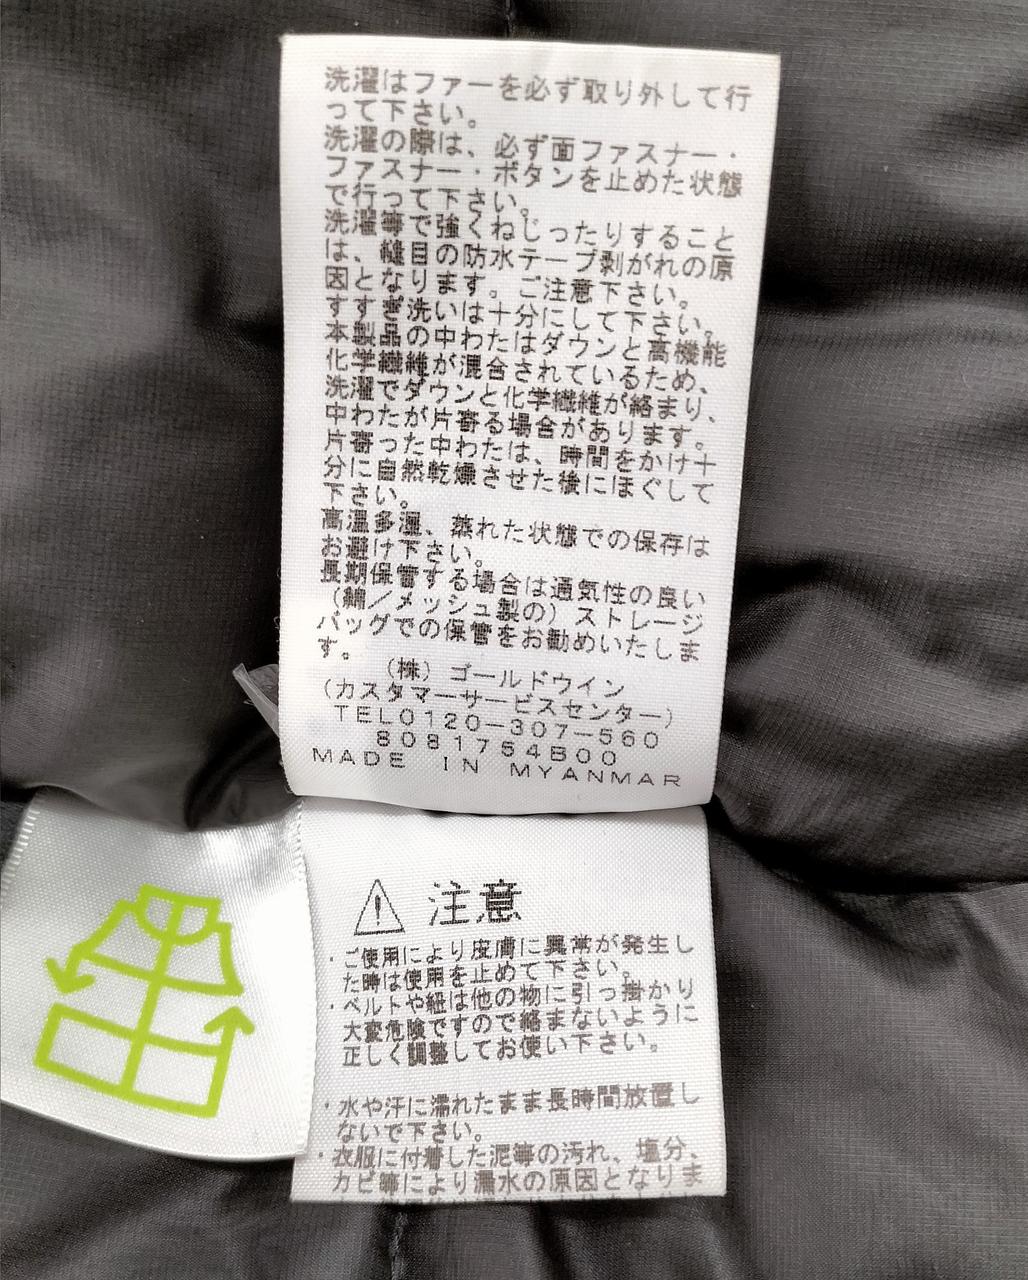 洗濯はファーを必ず取り外して行
って下さい。
洗濯の際は、必ず面ファスナー・
ファスナー・ボタンを止めた状態
で行って下さい。
洗濯等で強くねじったりすること
は、縫目の防水テープ剥がれの原
因となります。ご注意下さい。
すすぎ洗いは十分にして下さい。
本製品の中わたはダウンと高機能
化学繊維が混合されているため、
洗濯でダウンと化学繊維が絡まり、
中わたが片寄る場合があります。
片寄った中わたは、時間をかけ十
分に自然乾燥させた後にほぐして
下さい。
高温多湿、蒸れた状態での保存は
お避け下さい。
長期保管する場合は通気性の良い
（綿／メッシュ製の）ストレージ
バッグでの保管をお勧めいたしま
す。
（株）ゴールドウイン
（カスタマーサービスセンター）
TEL0120-307-560
8081754B00
MADE IN MYANMAR
注意
・ご使用により皮膚に異常が発生し
た時は使用を止めて下さい。
・ベルトや紐は他の物に引っ掛かり
大変危険ですので絡まないように
正しく調整してお使い下さい。
・水や汗に濡れたまま長時間放置し
ないで下さい。
・衣服に付着した泥等の汚れ、塩分、
カビ等により漏水の原因となりま